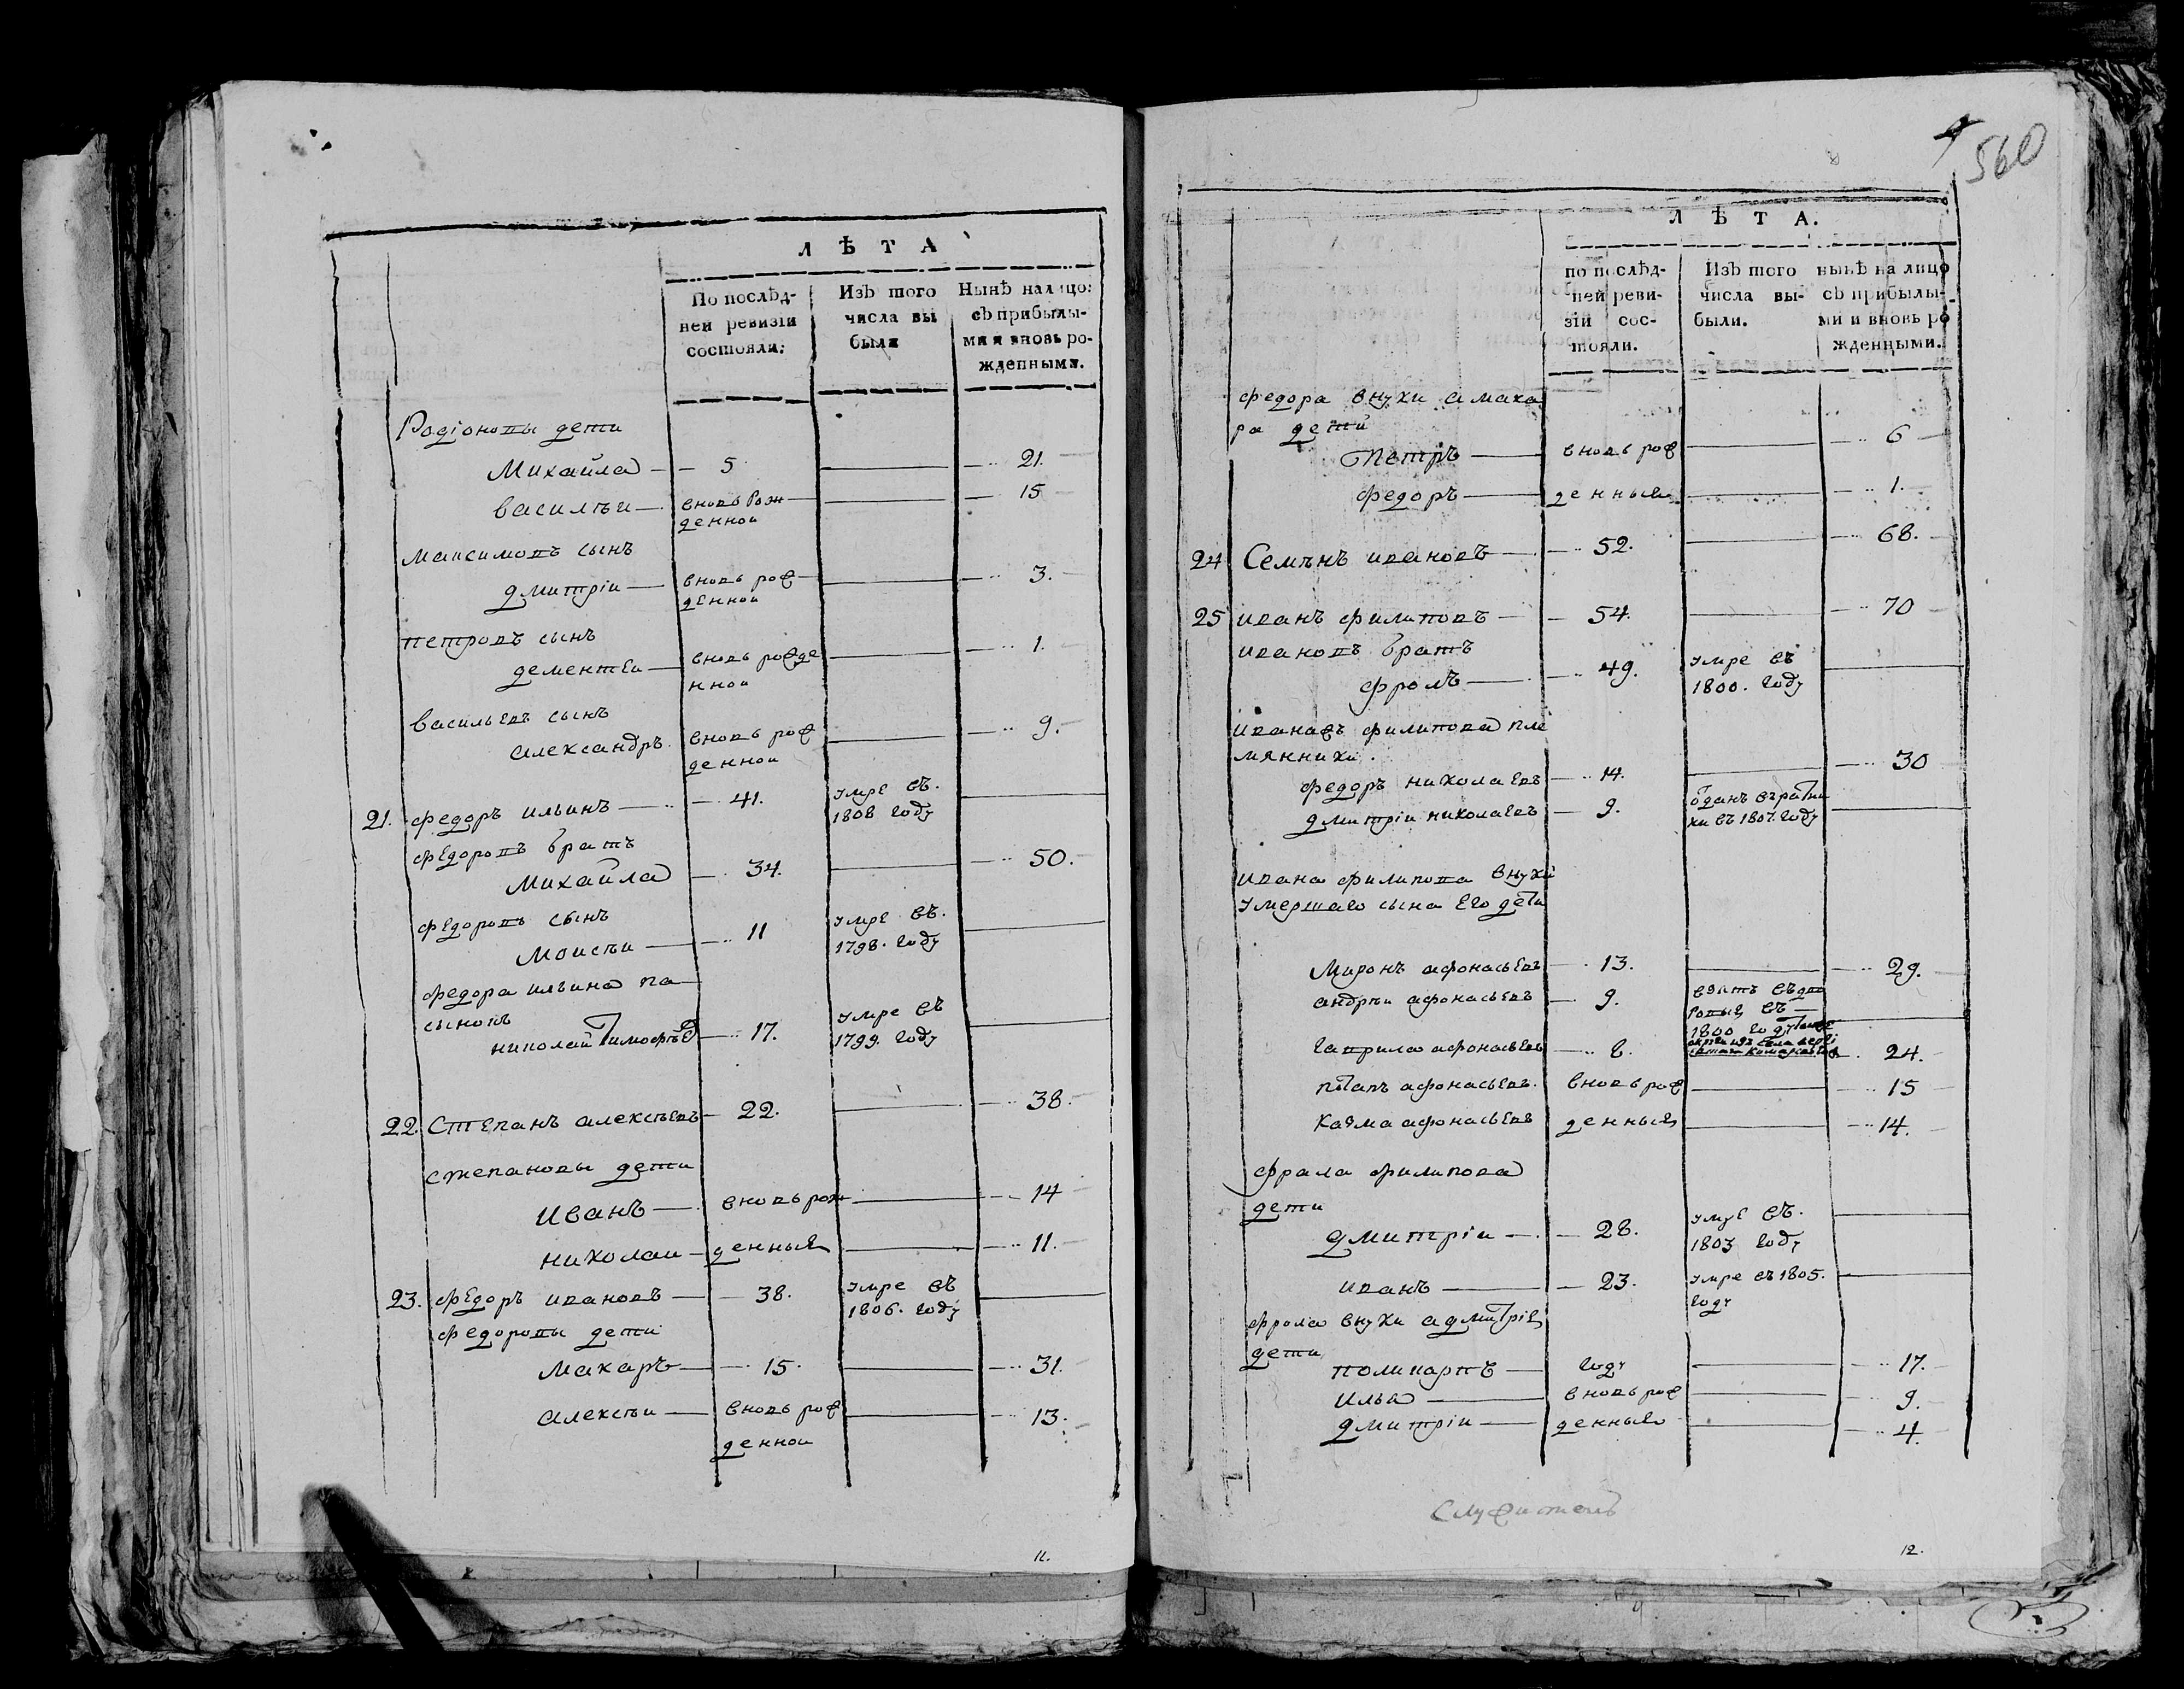 ЛѢТА
По послѣд-
ней ревизіи
состояли.
Изъ того
числа вы
были
Нынѣ налицо
съ прибылы-
ми и вновь ро-
жденными.
Родіоновы дети
Михаила 5 21.
василѣи вновь рож 15
денной
максимовъ сынъ
дмитріи вновь рож 3.
денной
петровъ сынъ
дементеи вновь рожде 1.
нной
васильевъ сынъ
александръ вновь рож 9.
денной
21. федоръ ильинъ 41. умре въ
1808 году
федоровъ братъ
Михаила 34. 50.
федоровъ сынъ
Моисѣи 11 умре въ
1798. году
федора ильина па
сынокъ
николаи Тимофѣевъ 17. умре въ
1799. году
22. Степанъ алексѣевъ 22. 38.
степановы дети
Иванъ вновь рож 14
николаи денныя 11.
23. федоръ ивановъ 38. умре въ
1806. году
федоровы дети
макаръ 15. 31.
алексѣи вновь рож 13.
денной
11.
560
ЛѢТА.
по послѣд-
ней реви-
зіи сос-
тояли.
Изъ того
числа вы-
были.
нынѣ на лицо
съ прибылы-
ми и вновь ро
жденными.
федора внуки а мака
ра дети
Петръ вновь рож 6
федоръ денныя 1.
24 Семѣнъ ивановъ 52. 68.
25 иванъ филиповъ 54. 70
ивановъ братъ
фролъ 49. умре въ
1800. году
ивановъ филипова пле
мянники.
федоръ николаевъ 14. 30
дмитріи николаевъ 9. отданъ в ратни
ки въ 1807. году
ивана филипова внуки
умершаго сына его дети
Миронъ афонасьевъ 13. 29.
андрѣи афонасьевъ 9. взятъ въ дво
ровыя въ
1800 году
гаврила афонасьевъ 8. 24.
потапъ афонасьевъ вновь рож 15
казма афонасьевъ денныя 14.
фрала филипова
дети
дмитріи 28. умре въ
1803 году
иванъ 23. умре въ 1805.
году
фрола внуки а дмитрія
дети
поликарпъ году 17.
илья вновь рож 9.
дмитріи денныя 4.
12.